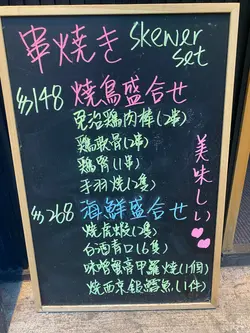 串焼き Skewer set
$148 焼鳥盛合せ
免治鶏肉棒(2串)
鶏軟骨(2串)
鶏腎(1串)
手羽焼(2隻)
$268 海鮮盛合せ
焼虎蝦(2隻)
白酒青口(6隻)
味噌蟹膏甲羅焼(1個)
焼西京銀鱈魚(1件)
美味しい